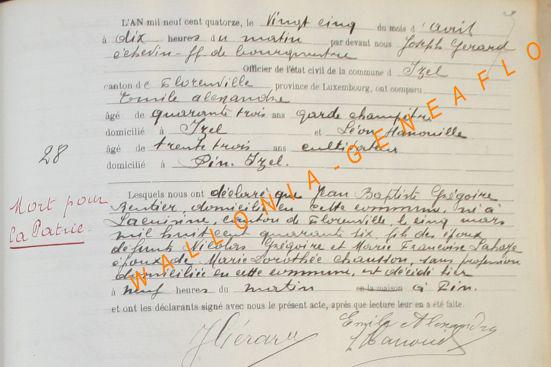 L'AN mil neuf cent quatorze, le Vingt cinq du mois d'avril
à dix heures du matin par devant nous Joseph Gerard
échevin-ff de bourgmestre
Officier de l'état civil de la commune d'Izel
canton de Florenville, province de Luxembourg, ont comparu
Emile Alexandre
âgé de quarante trois ans garde champêtre
domicilié à Izel et Léon Hanouille
âgé de trente trois ans cultivateur
domicilié à Pin-Izel.
28
Lesquels nous ont déclaré que Jean Baptiste Grégoire
Rentier, domicilié en cette commune, né à
Lacuisine, canton de Florenville, le cinq mars
mil huit cent quarante six, fils des époux
défunts Nicolas Grégoire et Marie Françoise Lahaye
époux de Marie Dorothée Chausson, sans profession
domiciliée en cette commune, est décédé hier
à neuf heures du matin en la maison à Pin.
et ont les déclarants signé avec nous le présent acte, après que lecture leur en a été faite.
Mort pour
la Patrie.
J Gérard
Emile Alexandre
L Hanouille
WALLONIA-GENEAFLO